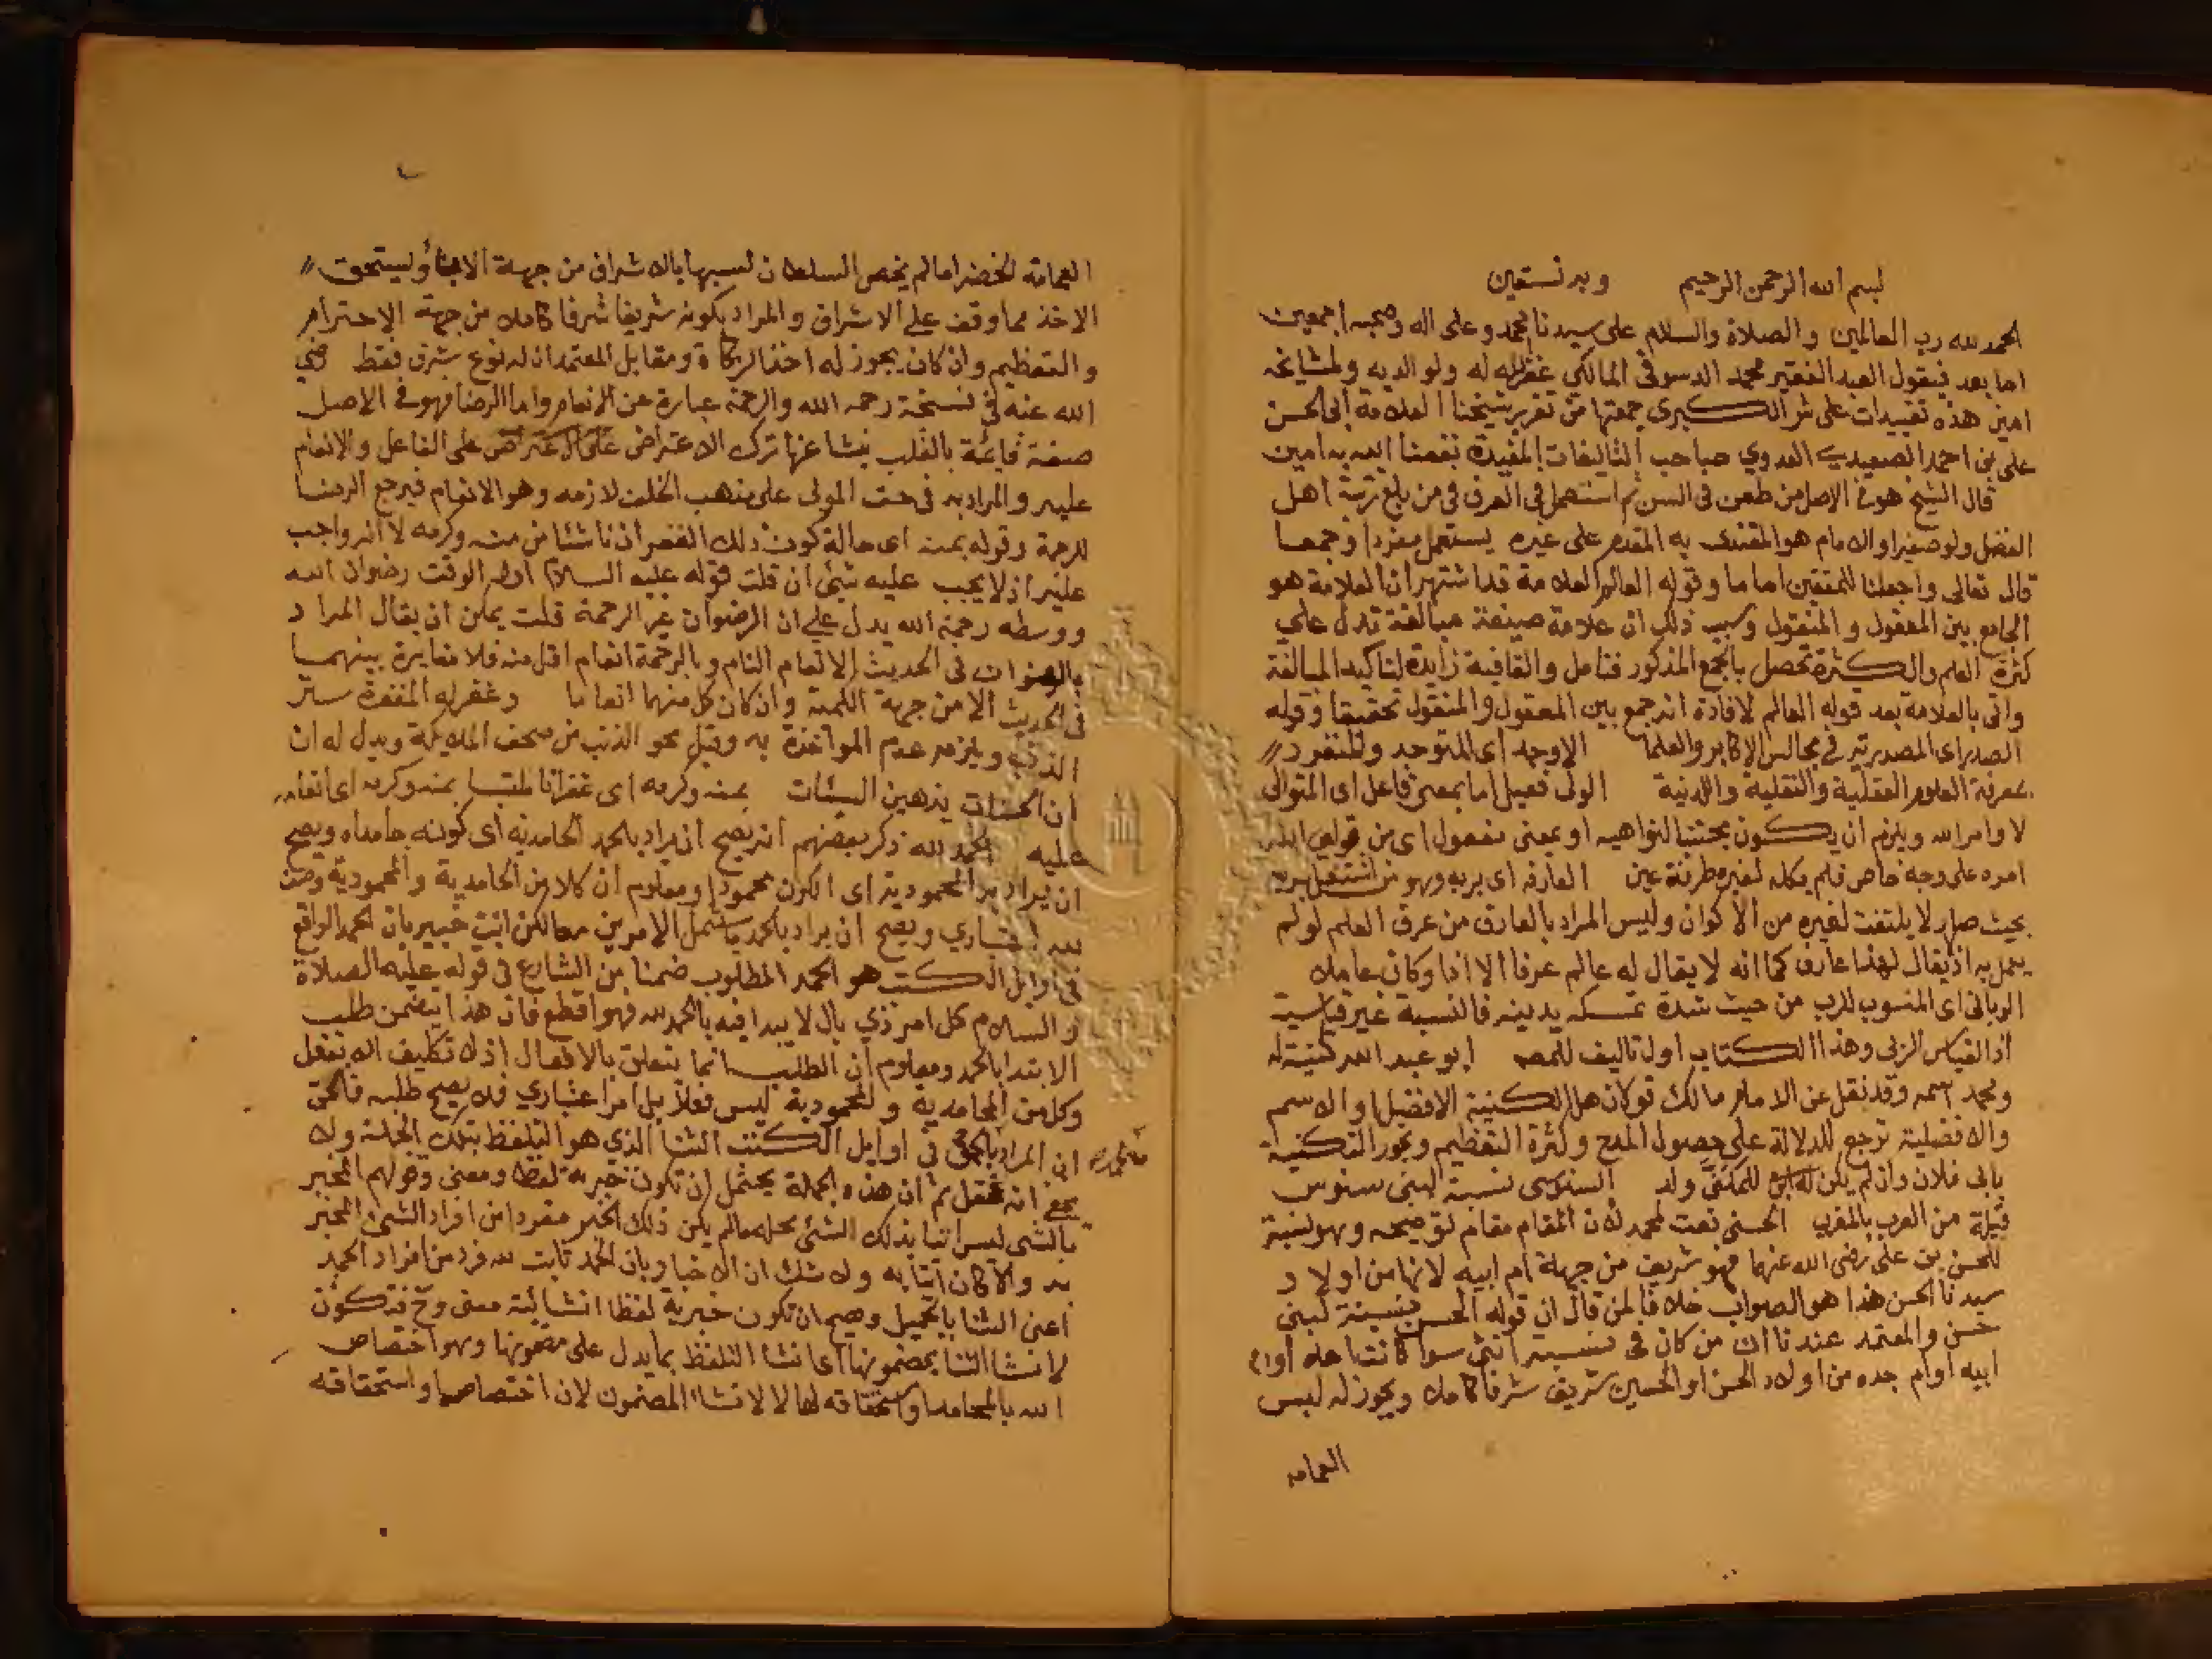 بسم الله الرحمن الرحيم وبه نستعين
الحمد لله رب العالمين والصلاة والسلام على سيدنا محمد وعلى اله وصحبه اجمعين
اما بعد فيقول العبد الفقير محمد الدسوقي المالكي غفر الله له ولوالديه ولمشايخه
امين هذه تقييدات على شرالكبرى جمعتها من تقرير شيخنا العلامة أبى الحسن
على بن احمد الصعيدي العدوي صاحب التاليفات المفيدة نفعنا الله به امين
قال الشيخ هو فى الاصل من طعن فى السن ثم استعمل فى العرف فى من بلغ رتبة اهل
الفضل ولو صغيرا والامام هو المقتدى به المقدم على غيره يستعمل مفردا وجمعا
قال تعالى واجعلنا للمتقين اماما وقوله العالم العلامة قد اشتهر ان العلامة هو
الجامع بين المعقول والمنقول وسبب ذلك ان علامة صيغة مبالغة تدل على
كثرة العلم والكثرة تحصل بالجمع المذكور فتامل والقافية زايدة لتاكيد المبالغة
واتى بالعلامة بعد قوله العالم لافادة انه جمع بين المعقول والمنقول تحقيقا وقوله
الصدر اى المصدر به فى مجالس الاكابر والعلما الاوحد اى المتوحد والمنفرد
بمعرفة العلوم العقلية والنقلية واللدنية الولى فعيل اما بمعنى فاعل اى المتوالى
لاوامر الله ويلزم ان يكون مجتنبا لنواهيه او بمعنى مفعول اى من تولى الله
امره على وجه خاص فلم يكله لغيره طرفة عين العارف اى بربه وهو من اشتغل بربه
بحيث صار لا يلتفت لغيره من الاكوان وليس المراد بالعارف من عرف العلم لو لم
يعمل به اذ يقال لهذا عارف كما انه لا يقال له عالم عرفا الا اذا وكان عاملا
الربانى اى المنسوب للرب من حيث شدة تمسكه بدينه فالنسبة غير قياسية
اذ القياس الربى وهذا الكتاب اول تاليف للمص ابو عبد الله كنية له
ومحمد اسمه وقد نقل عن الامام مالك تو كان هل الكنية الافضل او الاسم
والافضلية ترجع للدلالة على حصول المدح وكثرة التعظيم ويجوز التكنية
بابى فلان وان لم يكن له ابن للمكنى ولد السنوسى نسبة لبنى سنوس
قبيلة من العرب بالمغرب الحسنى نعت لمحمد لان المقام مقام توضيحه وهو نسبة
للحسن بن على رضى الله عنهما فهو شريف من جهة ام ابيه لانها من اولاد
سيدنا الحسن هذا هو الصواب خلافا لمن قال ان قوله الحسنى نسبة لبنى
حسن والمعتمد عندنا ان من كان فى نسبه انثى سوا كانت امه او ام
ابيه او ام جده من اولاد الحسن او الحسين شريف شرفا كاملا ويجوز له لبس
العمامه
العمامة الخضرا ما لم يخص السلطان لبسها بالاشراف من جهة الابا ويستحق
الاخذ مما وقف على الاشراف والمراد بكونه شريفا شرفا كاملا من جهة الاحترام
والتعظيم وان كان يجوز له اخذ الزكاة ومقابل المعتمد ان له نوع شرف فقط رضى
الله عنه فى نسخة رحمه الله والرحمة عبارة عن الانعام واما الرضا فهو فى الاصل
صفة قائمة بالقلب ينشا عنها ترك الاعتراض على الاعتراض على الفاعل والانعام
عليه والمراد به فى حق المولى على مذهب الخلف لازمه وهو الانعام فيرجع الرضا
للرحمة وقوله بمنه اى حالة كون ذلك الغفران ناشئا من منه وكرمه لا انه واجب
عليه اذ لا يجب عليه شئ ان قلت قوله عليه السلام اول الوقت رضوان الله
ووسطه رحمة الله يدل على ان الرضوان غير الرحمة قلت يمكن ان يقال المراد
بالرضوان فى الحديث الانعام التام وبالرحمة انعام اقل منه فلا مغايرة بينهما
فى الحديث الا من جهة الكمية وان كان كل منهما انعاما وغفر له المغفرة ستر
الذنب ويلزمه عدم المواخذة به وقيل محو الذنب من صحف الملايكة ويدل له ان
ان الحسنات يذهبن السيئات بمنه وكرمه اى غفرانا ملتبسا بمنه وكرمه اى انعامه
عليه الحمد لله ذكر بعضهم انه يصح ان يراد بالحمد الحامدية اى كونه حامدا ويصح
ان يراد به المحمودية اى الكون محمودا ومعلوم ان كلا من الحامدية والمحمودية وصف
لله اعتباري ويصح ان يراد بالحمد ما يشمل الامرين معا لكن انت خبير بان الحمد الواقع
فى اوايل الكتب هو الحمد المطلوب ضمنا من الشارع فى قوله عليه الصلاة
والسلام كل امر ذي بال لا يبدا فيه بالحمد لله فهو اقطع فان هذا يتضمن طلب
الابتدا بالحمد ومعلوم ان الطلب انما يتعلق بالافعال اذ لا تكليف الا بفعل
وكل من الحامدية والمحمودية ليس فعلا بل امرا اعتباري فلا يصح طلبه فالحق
ان المراد بالحمد فى اوايل الكتب الثنا الذي هو التلفظ بتلك الجملة ولا
انه فعل ثم ان هذه الجملة يحتمل ان تكون خبرية لفظا ومعنى وقولهم المخبر
بالشى ليس اتيا بذلك الشئ محله ما لم يكن ذلك الخبر مفردا من افراد الشئ المخبر
به والا كان اتيا به ولا شك ان الاخبار بان الحمد ثابت لله فرد من افراد الحمد
اعنى الثنا بالجميل ويصح ان تكون خبرية لفظا انشائية معنى وح فتكون
لانشا الثنا بمضمونها اى انشا التلفظ بما يدل على مضمونها وهو اختصاص
الله بالمحامد او استحقاقه لها لا لانشا المضمون لان اختصاصه او استحقاقه